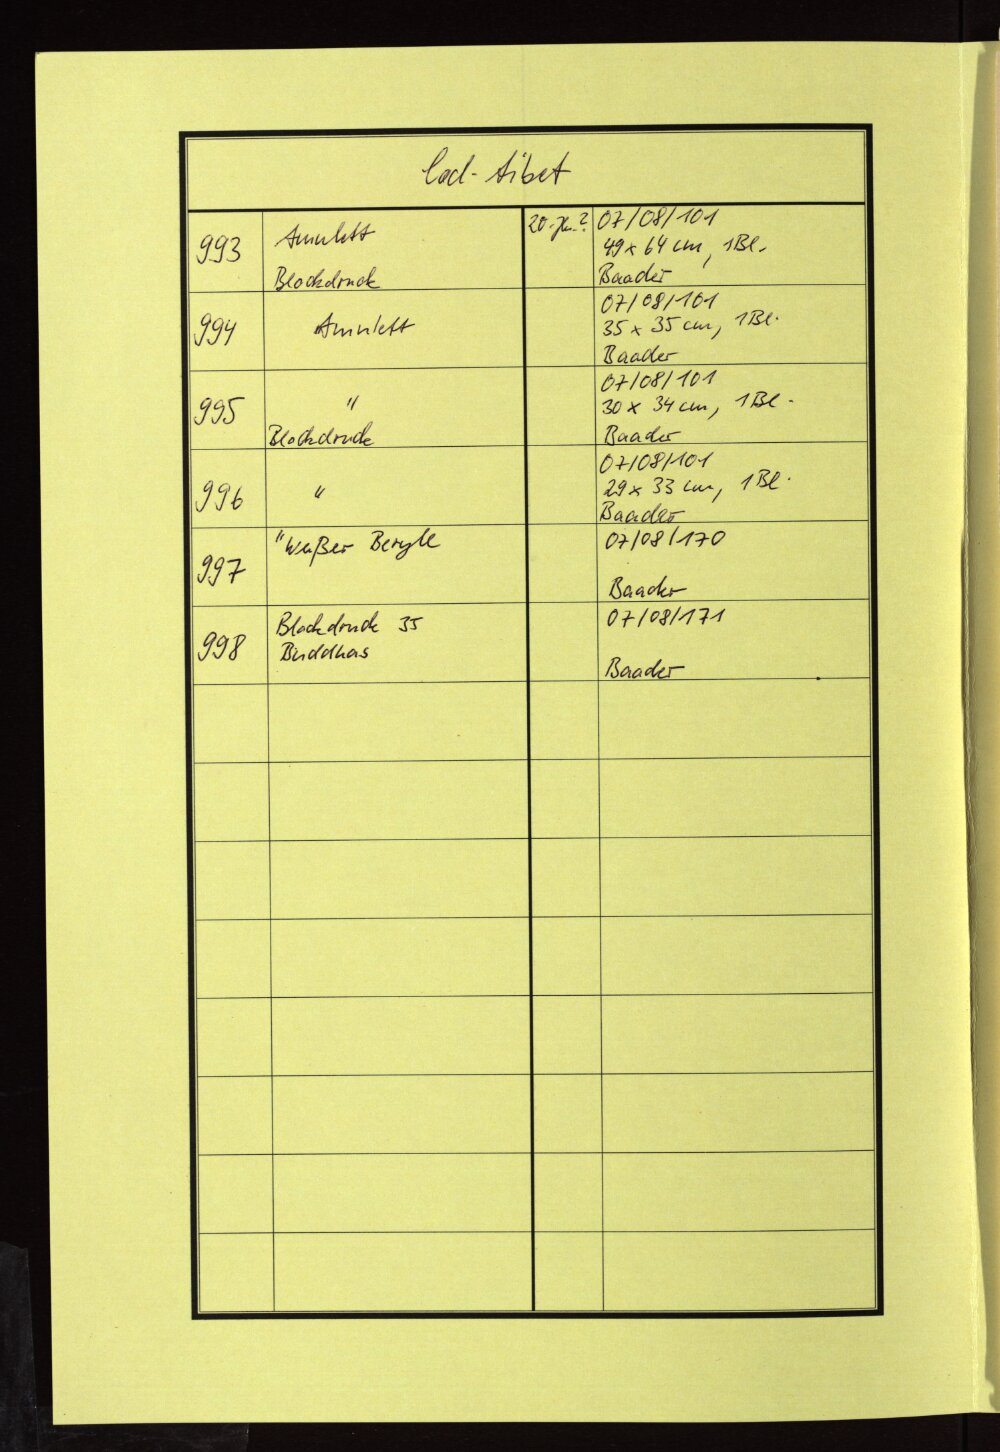 Cod. tibet
993 Amulett 20. Jh.? 07/08/101
49 x 64 cm, 1 Bl.
Blockdruck Baader
994 Amulett 07/08/101
35 x 35 cm, 1 Bl.
Baader
995 " 07/08/101
30 x 34 cm, 1 Bl.
Blockdruck Baader
996 " 07/08/101
29 x 33 cm, 1 Bl.
Baader
997 "Weißer Beryll 07/08/170
Baader
998 Blockdruck 35 07/08/171
Buddhas
Baader